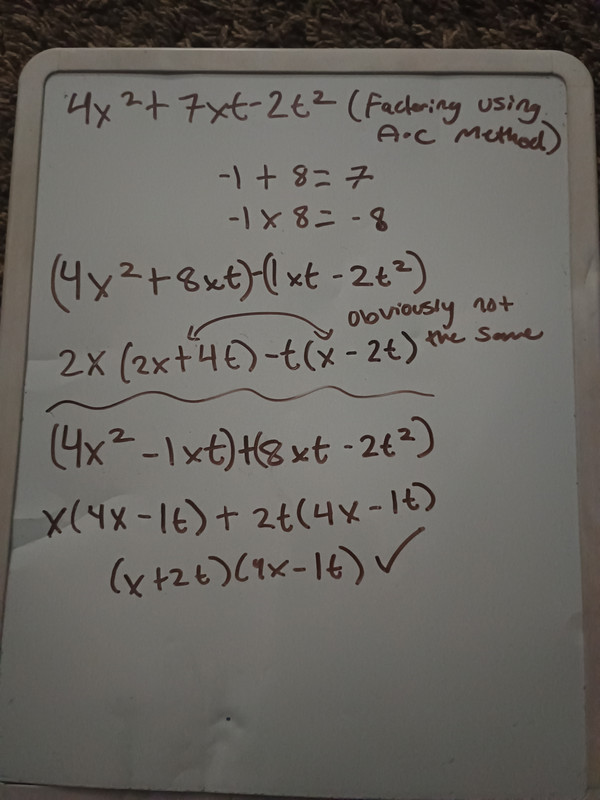 4x² + 7xt - 2t² (Factoring using
A•C Method)
-1 + 8 = 7
-1 x 8 = -8
(4x² + 8xt) - (1xt - 2t²)
obviously not
the same
2x (2x + 4t) - t(x - 2t)
(4x² - 1xt) + (8xt - 2t²)
x(4x - 1t) + 2t(4x - 1t)
(x + 2t)(4x - 1t) ✓